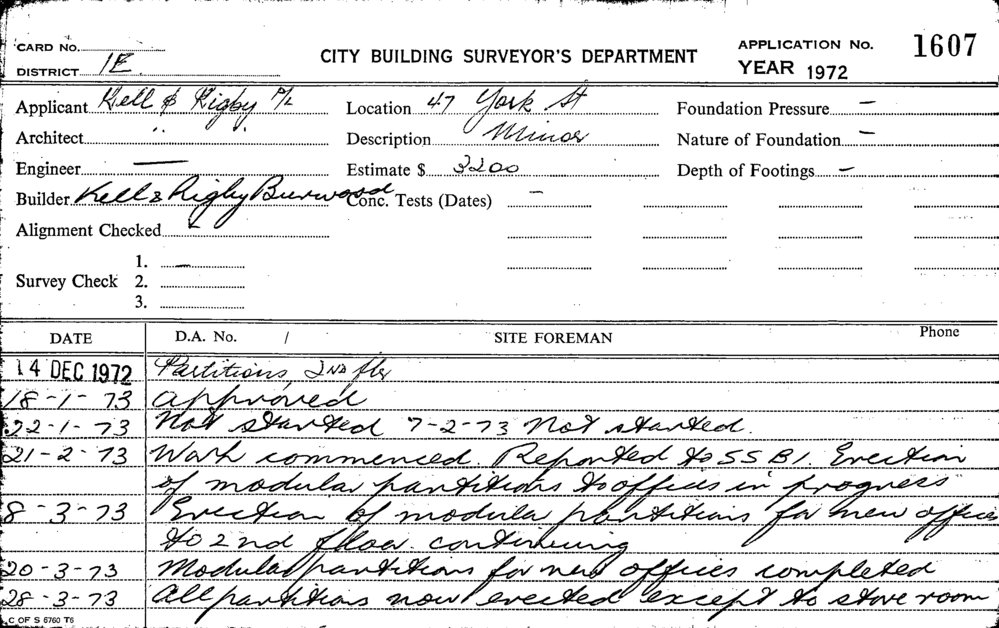 CARD No.
DISTRICT 1E
CITY BUILDING SURVEYOR'S DEPARTMENT
APPLICATION No. 1607
YEAR 1972
Applicant Kell & Rigby P/L
Location 47 York St
Foundation Pressure —
Architect " "
Description Minor
Nature of Foundation —
Engineer —
Estimate $ 3200
Depth of Footings —
Builder Kell & Rigby Burwood
Conc. Tests (Dates) —
Alignment Checked
Survey Check
1. —
2.
3.
DATE D.A. No. / SITE FOREMAN Phone
14 DEC 1972 Partitions, 2nd flr
18-1-73 Approved
22-1-73 Not started 7-2-73 Not started.
21-2-73 Work commenced. Reported to SSBI. Erection
of modular partitions to offices in progress
8-3-73 Erection of modular partitions for new offices
to 2nd floor continuing
20-3-73 Modular partitions for new offices completed
28-3-73 All partitions now erected except to store room
C OF S 6760 T6